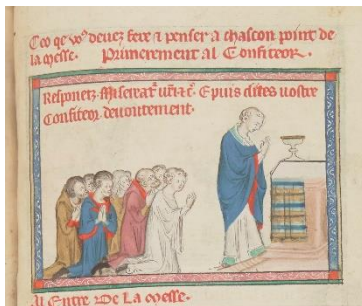 Ceo qe vo⁹ deuez fere e penser a chascon point de
la messe. Primerement al Confiteor.
Responez Misereat⁊ u͛ri ⁊c̄. E puis dites uostre
Confiteor deuoutement.
Al Entre De La messe.